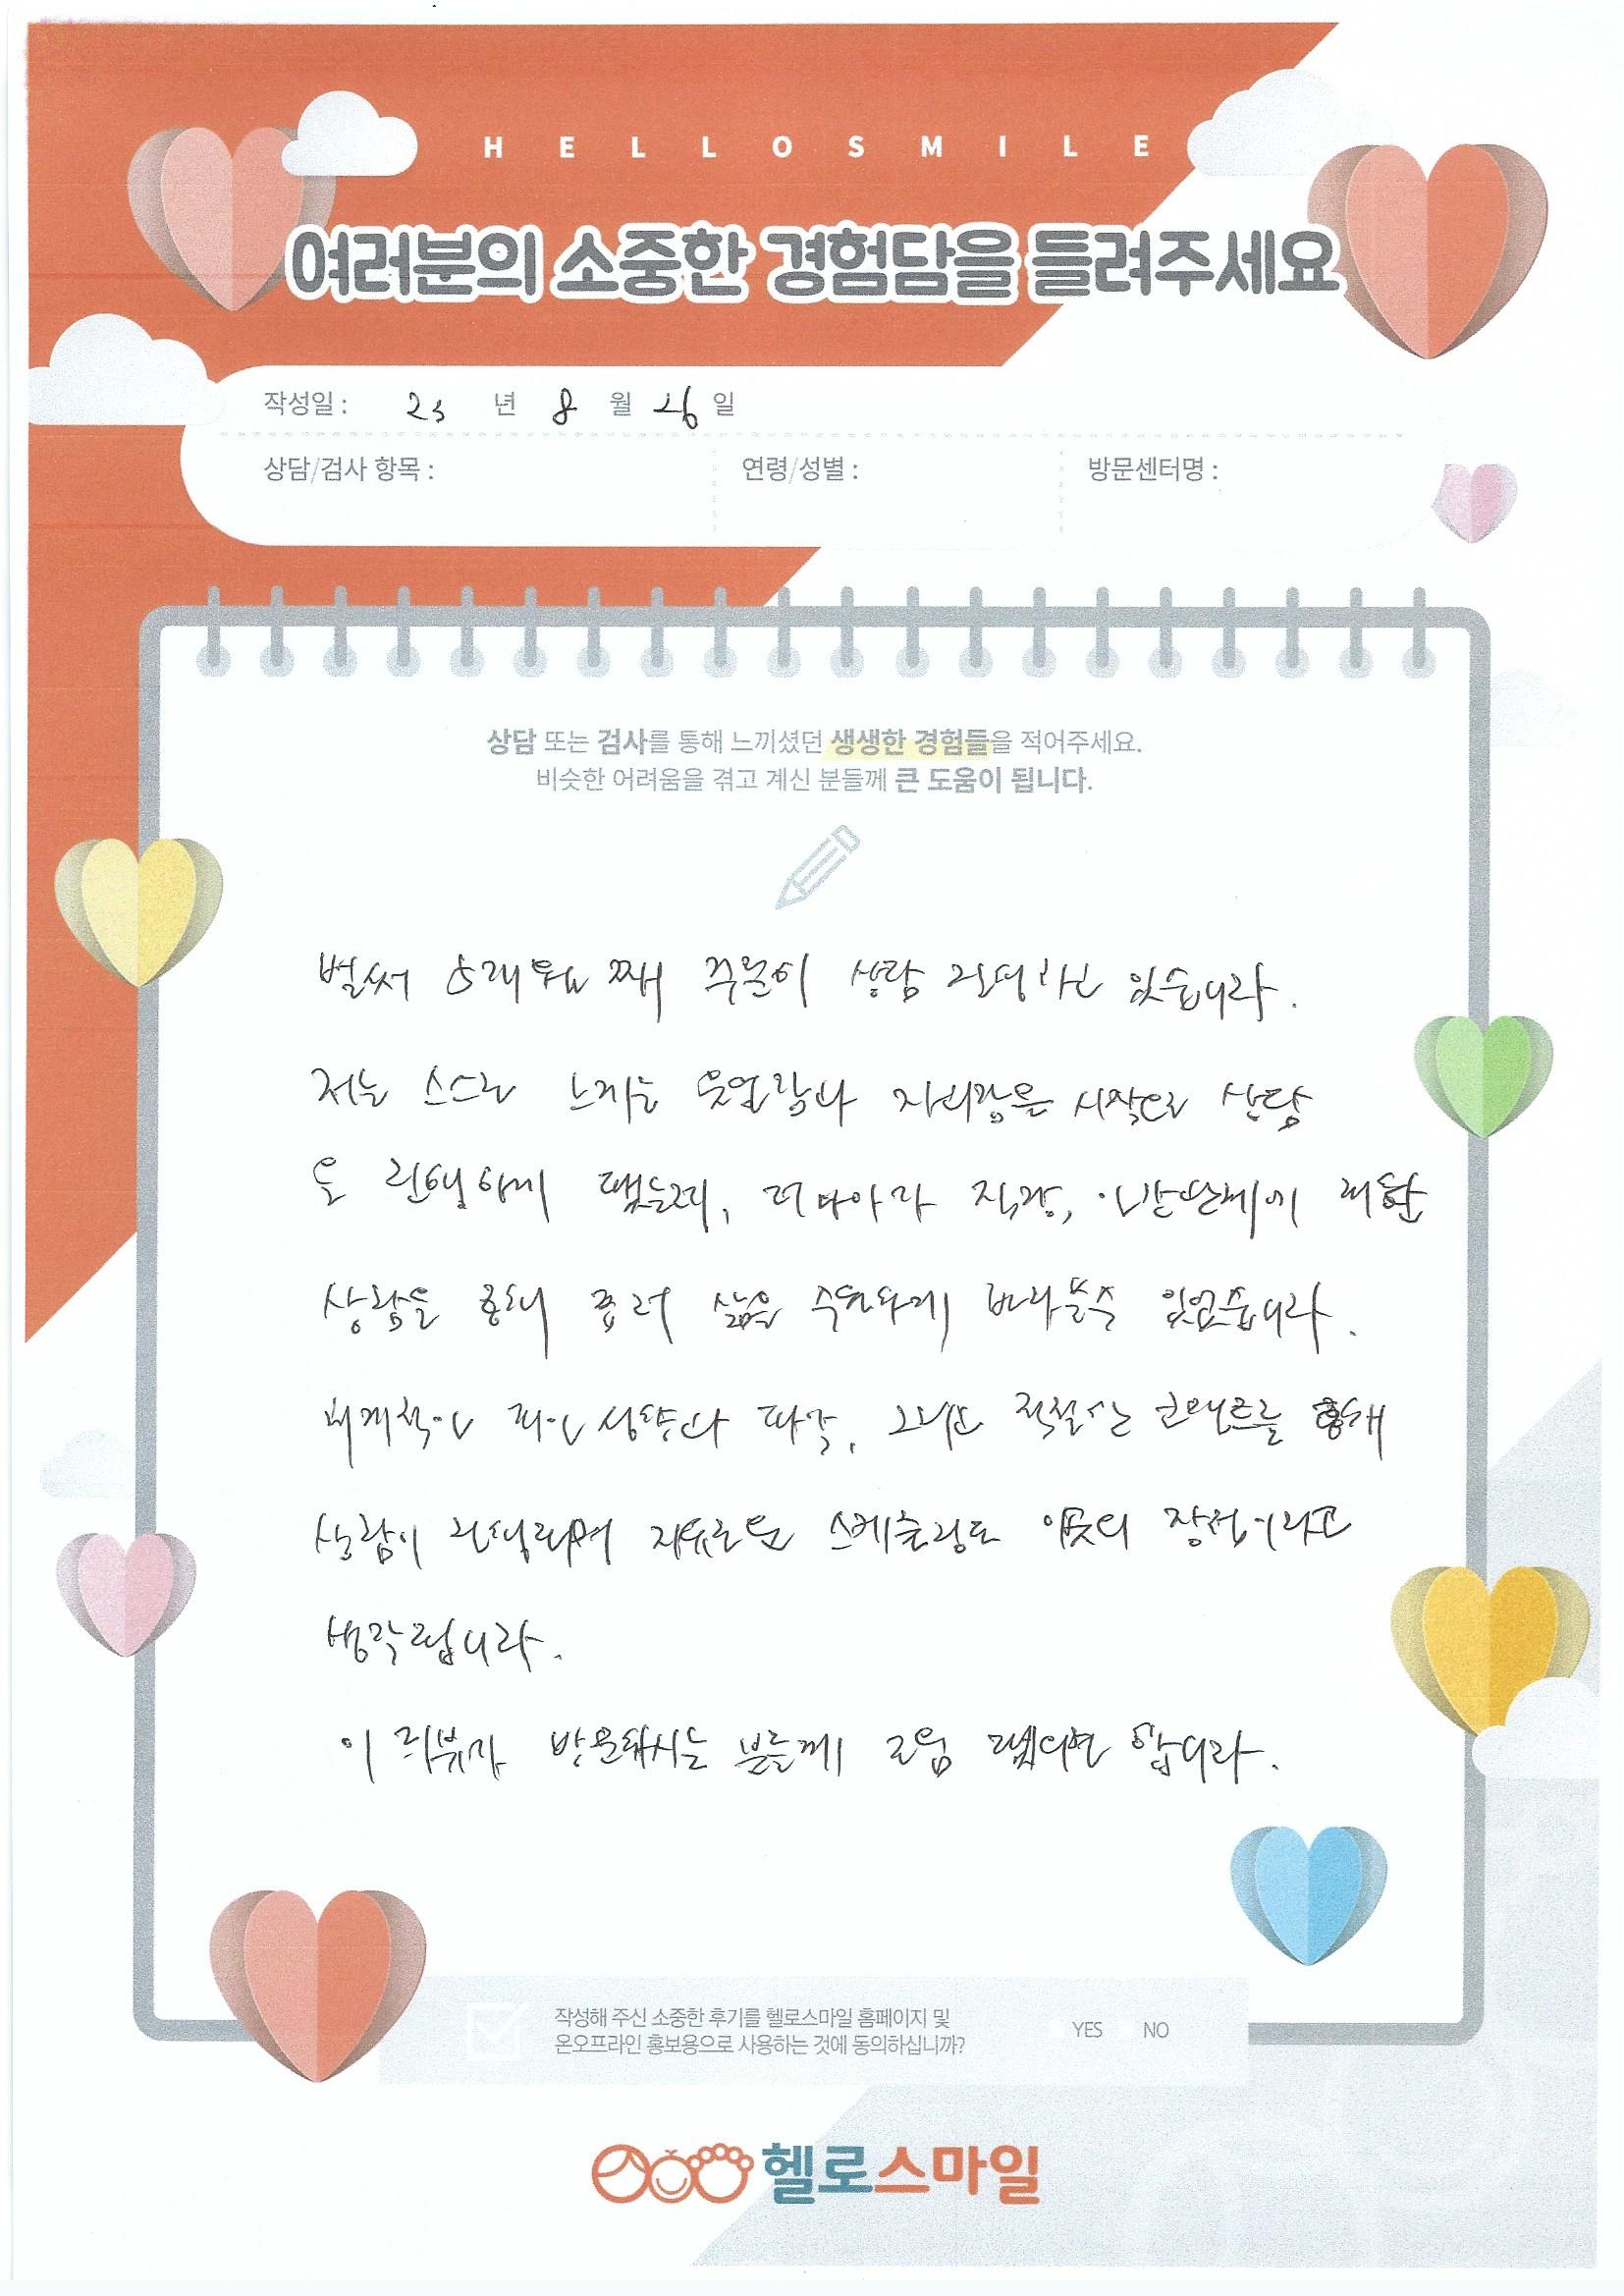 HELLOSMILE
여러분의 소중한 경험담을 들려주세요
작성일 : 23 년 8 월 26 일
상담/검사 항목 : 연령/성별 : 방문센터명 :
상담 또는 검사를 통해 느끼셨던 생생한 경험들을 적어주세요.
비슷한 어려움을 겪고 계신 분들께 큰 도움이 됩니다.
벌써 5개월 째 꾸준히 상담 진행하고 있습니다.
저는 스스로 느끼는 우울감과 자괴감을 시작으로 상담
을 진행하게 됐는데, 더 나아가 직장, 인간관계에 대한
상담을 통해 좀 더 삶을 수월하게 바라볼 수 있었습니다.
체계적인 개인성향과 파악, 그리고 적절한 코멘트를 통해
상담이 진행되며 자유로운 스케줄링도 이곳의 장점이라고
생각됩니다.
이 리뷰가 방문하시는 분들께 도움 됐으면 합니다.
작성해 주신 소중한 후기를 헬로스마일 홈페이지 및
온오프라인 홍보용으로 사용하는 것에 동의하십니까? YES NO
헬로스마일